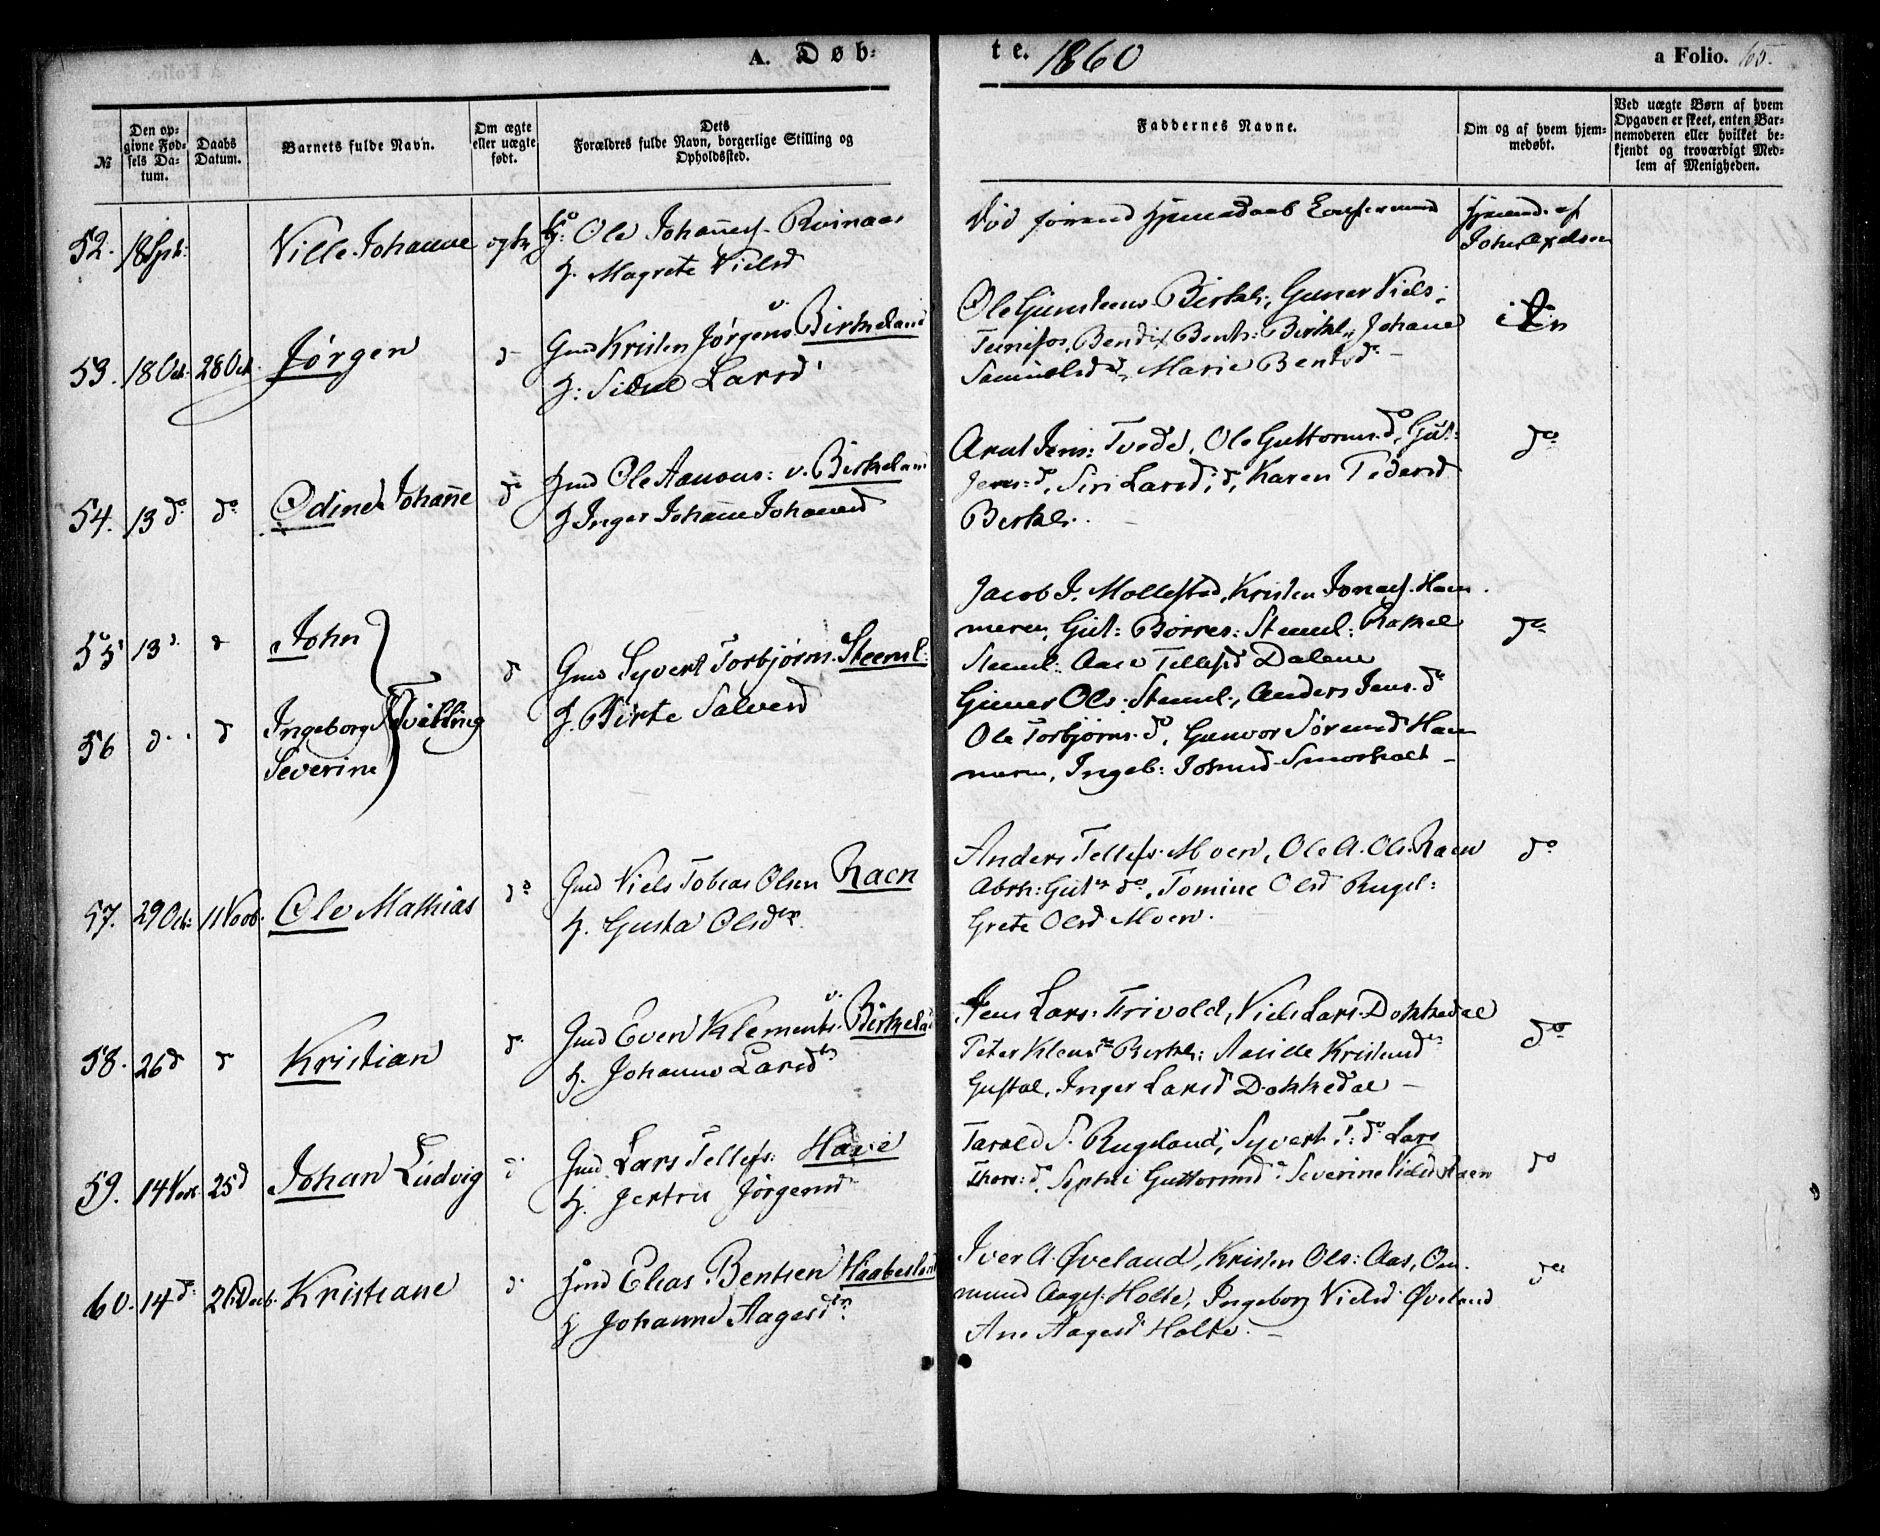 A. Døb-
te. 1860
a Folio. 65.
№
Den op-
givne Fød-
sels Da-
tum.
Daabs
Datum.
Barnets fulde Navn.
Om ægte
eller uægte
født.
Dets
Forældres fulde Navn, borgerlige Stilling og
Opholdssted.
Faddernes Navne.
Om og af hvem hjem-
medøbt.
Ved uægte Børn af hvem
Opgaven er skeet, enten Bar-
nemoderen eller hvilket be-
kjendt og troværdigt Med-
lem af Menigheden.
52. 18 Spt: Nille Johanne ægte Ole Johannes.
H. Magrete Nielsd
Død førend Hjemmedaab
Hjemmd. af
53. 18 Oct: 28 Oct. Jørgen d- Gmd Kristen Jørgens: v. Birkeland
H: Larsd
Ole Gunsteens Birkel:, Guner Niels:
Bendix Bents: Birkl:, Johanne
Samuelsd do, Marie Bentsd do -
54. 13 do do Odine Johanne do Hmd Ole Aanons: v. Birkeland
H Inger Johanne
Arnt Jens: Tvede, Ole Guttorms: do, Gut:
Jens: do, Siri Larsd: d, Karen Pedersd
Birkel: -
do
55 13 d d John
Gmd Syvert Torbjørns. Steeml:
H. Birte Salvesd
Jacob J. Mollestad, Kristen Jonass. Ham-
meren, Gut: Børres: Steml: Rakel
Steeml: Aase Tellefsd Dalene
do
56 d. d Ingeborg Tvilling
Severine
d
Guner Ols: Steml:, Anders Jens: do
Ole Torbjørns. do, Gunvor Sørensd Ham
meren, Ingeb:
57. 29 Oct: 11 Novb. Ole Mathias do Gmd Niels Tobias Olsen Raen
H. Gusta Olsdtr.
Anders Tellefs: Moen, Ole A. Ols: Raen
Abrh: Gut do, Tomine Olsd Rugsl:
Grete Olsd Moen.
do
58. 26 d d Kristian d. Gmd Even Klements. v. Birkela
H. Johanne Larsdtr
Jens Lars: Trivold, Niels Lars: Dokkedal
Peter Klem Birkl:
Inger Larsd Dokkedal -
do
59. 14 Nov 25 d Johan Ludvig d Gmd Lars Tellefs: Have
H. Jertru Jørgensd
Tarald S. Rugsland, Syvert T: do Lars
Thors: d, Sophie Guttormsd d Severine Nielsd Raen
do
60. 14 d: 26 Decb. Kristiane d Hmd Elias Bentsen Haabesland
H Johanne Aagesdtr.
Iver A. Øveland, Kristen Ols: Aas, Om-
mund Aages: Holte, Ingeborg Nielsd Øveland
Ane Aagesd Holte. -
do